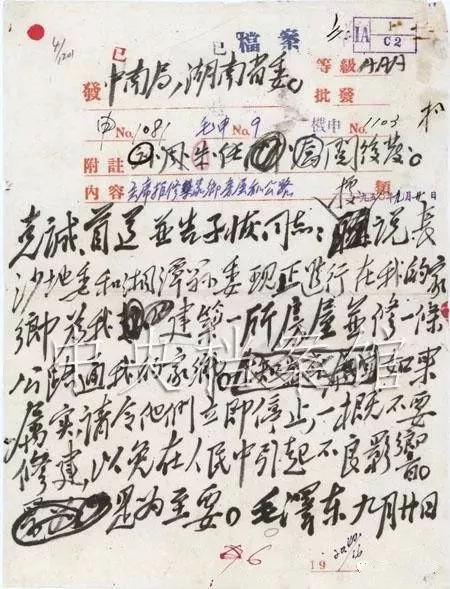 已
已檔案
IA
C2
4/1201
等級AAA
發中南局，湖南省委。
批發
申No.1081 毛申No.9 機申No.1103
附註
閱後發。
內容
類
克誠、首道並告子恢同志：
說長
沙地委和湘潭縣委現正進行在我的家
鄉為我建築一所房屋並修一條
公路通我的家鄉。
如果
屬實，請令他們立即停止，一概不要
修建，以免在人民中引起不良影響。
是為主要。毛澤东九月廿日
中央档案馆
19